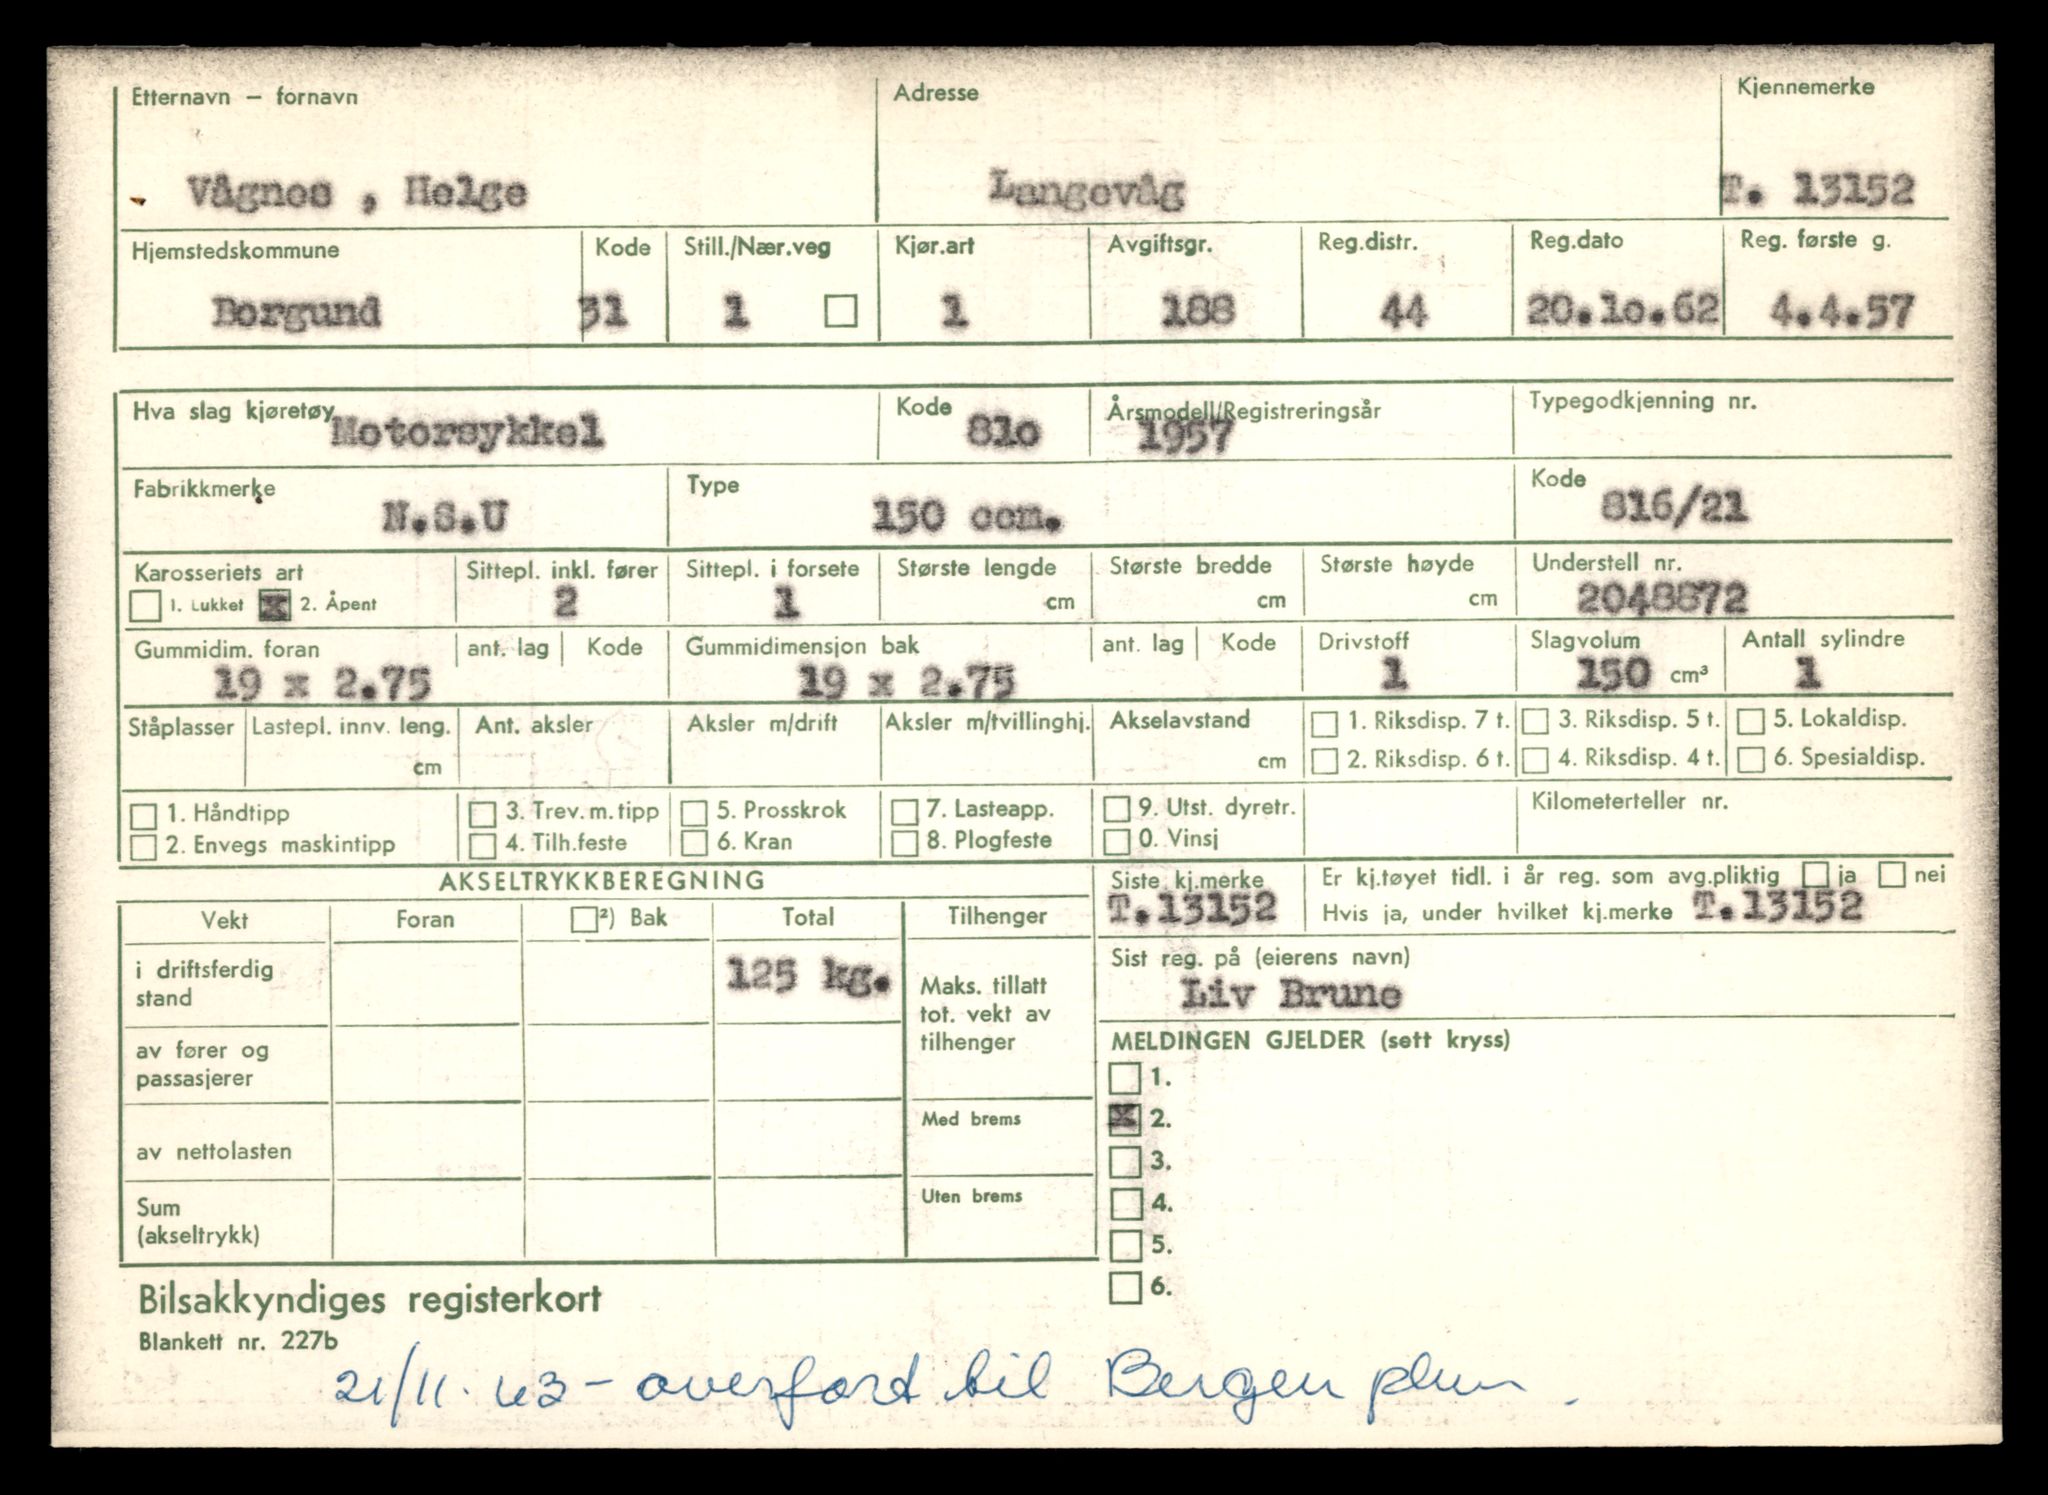 Etternavn – fornavn Adresse Kjennemerke
Vågnes , Helge Langevåg T. 13152
Hjemstedskommune Kode Still./Nær.veg Kjør.art Avgiftsgr. Reg.distr. Reg.dato Reg. første g.
Borgund 31 1 1 188 44 20.10.62 4.4.57
Hva slag kjøretøy Kode Årsmodell/Registreringsår Typegodkjenning nr.
Motorsykkel 810 1957
Fabrikkmerke Type Kode
N.S.U 150 ccm. 816/21
Karosseriets art Sittepl. inkl. fører Sittepl. i forsete Største lengde Største bredde Største høyde Understell nr.
1. Lukket x 2. Åpent 2 1 cm cm cm 2048872
Gummidim. foran ant. lag Kode Gummidimensjon bak ant. lag Kode Drivstoff Slagvolum Antall sylindre
19 x 2.75 19 x 2.75 1 150 cm³ 1
Ståplasser Lastepl. innv. leng. Ant. aksler Aksler m/drift Aksler m/tvillinghj. Akselavstand 1. Riksdisp. 7 t. 3. Riksdisp. 5 t. 5. Lokaldisp.
cm cm 2. Riksdisp. 6 t. 4. Riksdisp. 4 t. 6. Spesialdisp.
1. Håndtipp 3. Trev. m. tipp 5. Prosskrok 7. Lasteapp. 9. Utst. dyretr. Kilometerteller nr.
2. Envegs maskintipp 4. Tilh.feste 6. Kran 8. Plogfeste 0. Vinsj
AKSELTRYKKBEREGNING Siste kj.merke Er kj.tøyet tidl. i år reg. som avg.pliktig ja nei
T.13152 Hvis ja, under hvilket kj.merke T.13152
Vekt Foran ²) Bak Total Tilhenger
Sist reg. på (eierens navn)
Liv Brune
i driftsferdig stand 125 kg. Maks. tillatt
tot. vekt av
tilhenger
MELDINGEN GJELDER (sett kryss)
av fører og
passasjerer
1.
x 2.
Med brems
av nettolasten
3.
4.
Uten brems
Sum
(akseltrykk)
5.
6.
Bilsakkyndiges registerkort
Blankett nr. 227b
21/11. 63 – overført til Bergen